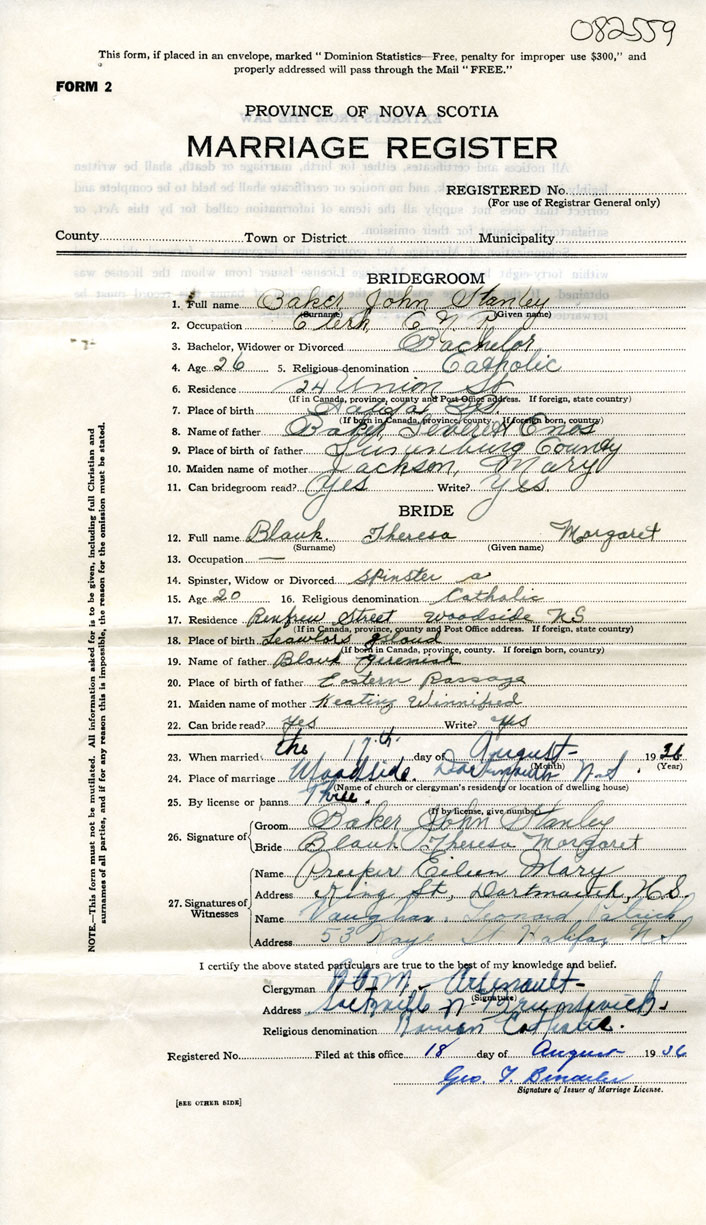 082559
This form, if placed in an envelope, marked "Dominion Statistics—Free, penalty for improper use $300," and
properly addressed will pass through the Mail "FREE."
FORM 2
PROVINCE OF NOVA SCOTIA
MARRIAGE REGISTER
REGISTERED No.
(For use of Registrar General only)
County Town or District Municipality
BRIDEGROOM
1. Full name Baker John Stanley
(Surname) (Given name)
2. Occupation Clerk, C N R
3. Bachelor, Widower or Divorced Bachelor
4. Age 26 5. Religious denomination Catholic
6. Residence 24 Union St
(If in Canada, province, county and Post Office address. If foreign, state country)
7. Place of birth Halifax N.S.
(If born in Canada, province, county. If foreign born, country)
8. Name of father Baker, Enos
9. Place of birth of father Lunenburg County
10. Maiden name of mother Jackson, Mary
11. Can bridegroom read? Yes Write? Yes.
BRIDE
12. Full name Blank Theresa Margaret
(Surname) (Given name)
13. Occupation —
14. Spinster, Widow or Divorced Spinster
15. Age 20 16. Religious denomination Catholic
17. Residence Renfrew Street Woodside NS
(If in Canada, province, county and Post Office address. If foreign, state country)
18. Place of birth Lawlors Island
(If born in Canada, province, county. If foreign born, country)
19. Name of father Blank Jeremiah
20. Place of birth of father Eastern Passage
21. Maiden name of mother Keating Winnifred
22. Can bride read? Yes Write? Yes
23. When married the 17th day of August 1936
(Month) (Year)
24. Place of marriage Woodside. Dartmouth N.S.
(Name of church or clergyman's residence or location of dwelling house)
25. By license or banns Three.
(If by license, give number)
26. Signature of Groom Baker John Stanley
Bride Blank Theresa Margaret
27. Signatures of Witnesses
Name Preeper Eileen Mary
Address King St., Dartmouth, N.S.
Name Vaughan Leonard Patrick
Address 53 Kaye St Halifax N S
I certify the above stated particulars are true to the best of my knowledge and belief.
Clergyman Arsenault
(Signature)
Address Sackville N. Brunswick.
Religious denomination Roman Catholic.
Registered No. Filed at this office 18 day of August 1936
Geo. T.
Signature of Issuer of Marriage License.
[SEE OTHER SIDE]
NOTE.—This form must not be mutilated. All information asked for is to be given, including full Christian and
surnames of all parties, and if for any reason this is impossible, the reason for the omission must be stated.